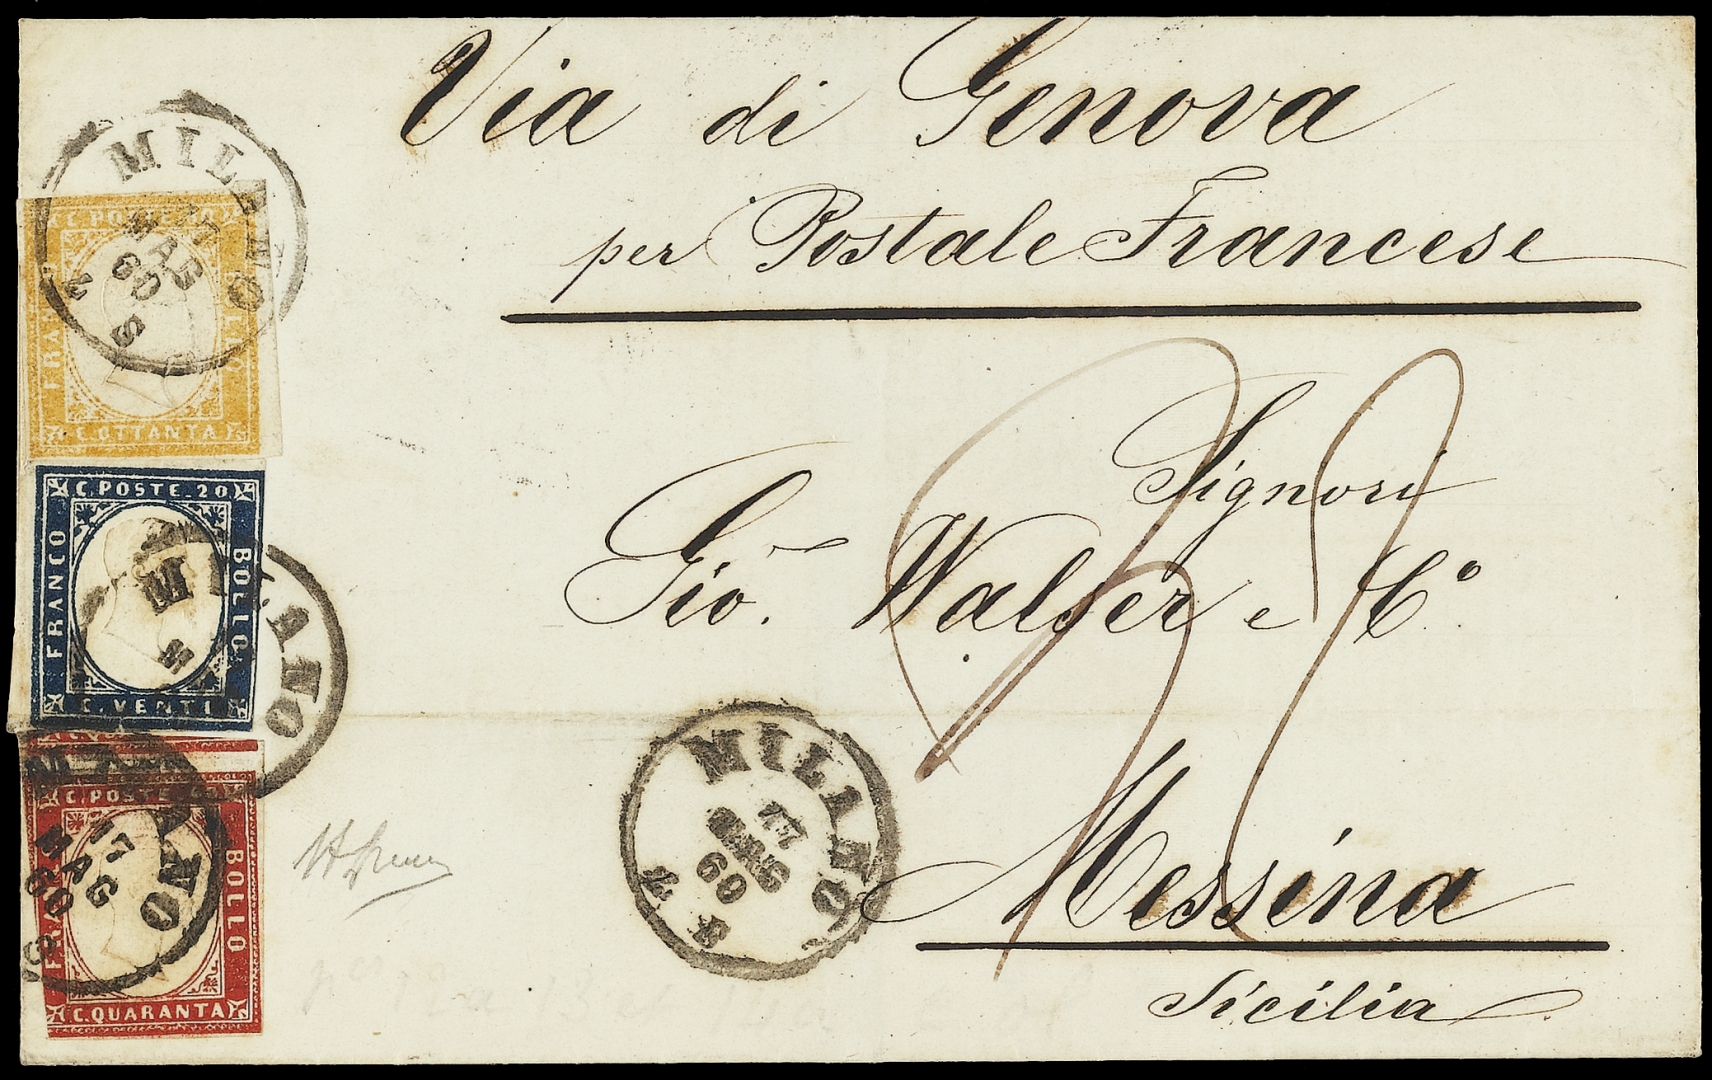 Via di Genova
per Postale Francese
Signori
Gio. Walser e Co
Messina
Sicilia
MILANO
17
MAG
60
S
C. POSTE 80
FRANCO
BOLLO
C. OTTANTA
C. POSTE. 20
FRANCO
BOLLO
C. VENTI
MILANO
C. POSTE 40
BOLLO
C. QUARANTA
MILANO
17
MAG
60
S
MILANO
17
MAG
60
S